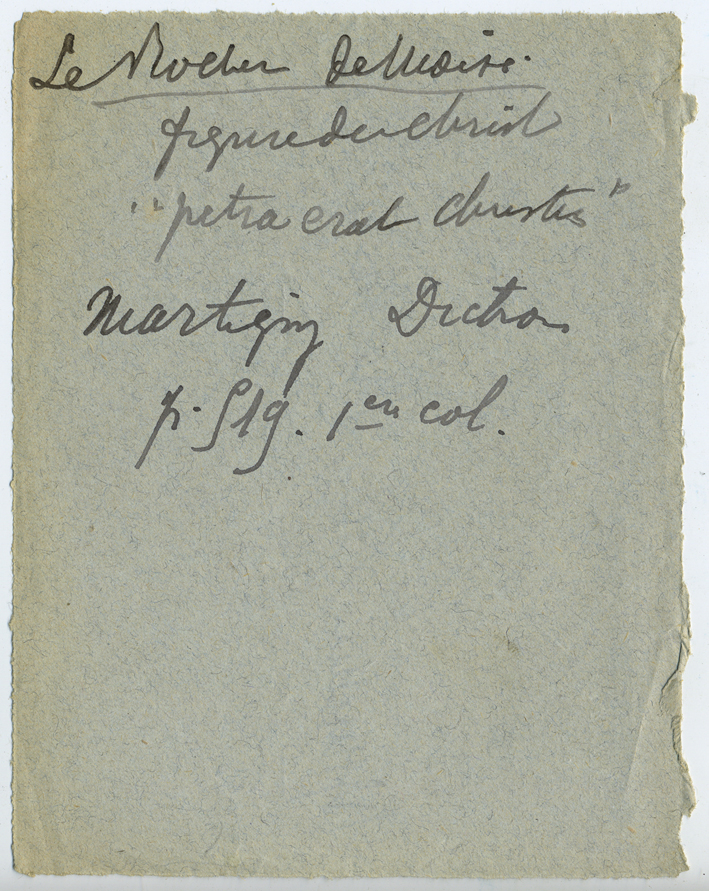 Le Rocher de Moïse.
figure du Christ
"petra erat Christus"
Martigny Diction
p. 519. 1er col.